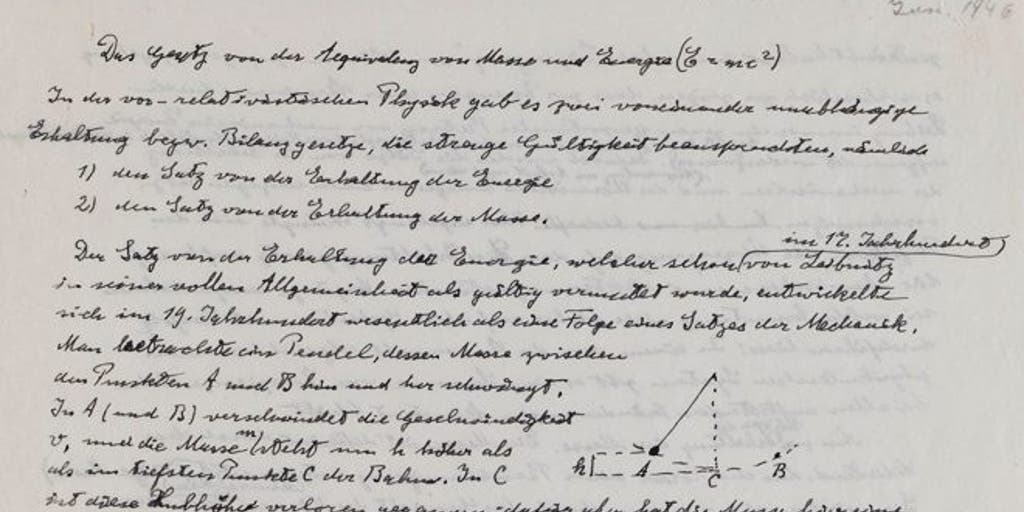 Jan. 1946
Das Gesetz von der Aequivalenz von Masse und Energie (E = mc²)
In der vor-relativistischen Physik gab es zwei voneinander unabhängige
Erhaltung bezw. Bilanzgesetze, die strenge Gültigkeit beanspruchten, nämlich
1) den Satz von der Erhaltung der Energie
2) den Satz von der Erhaltung der Masse.
im 17. Jahrhundert
Der Satz von der Erhaltung der Energie, welcher schon von Leibnitz
in seiner vollen Allgemeinheit als gültig vermutet wurde, entwickelte
sich im 19. Jahrhundert wesentlich als eine Folge eines Satzes der Mechanik.
Man betrachte ein Pendel, dessen Masse zwischen
den Punkten A und B hin und her schwingt.
In A (und B) verschwindet die Geschwindigkeit
v, und die Masse m steht um h höher als
als im tiefsten Punkte C der Bahn. In C
ist diese Hubhöhe verloren gegangen; dafür aber hat die Masse hier eine
h A C B